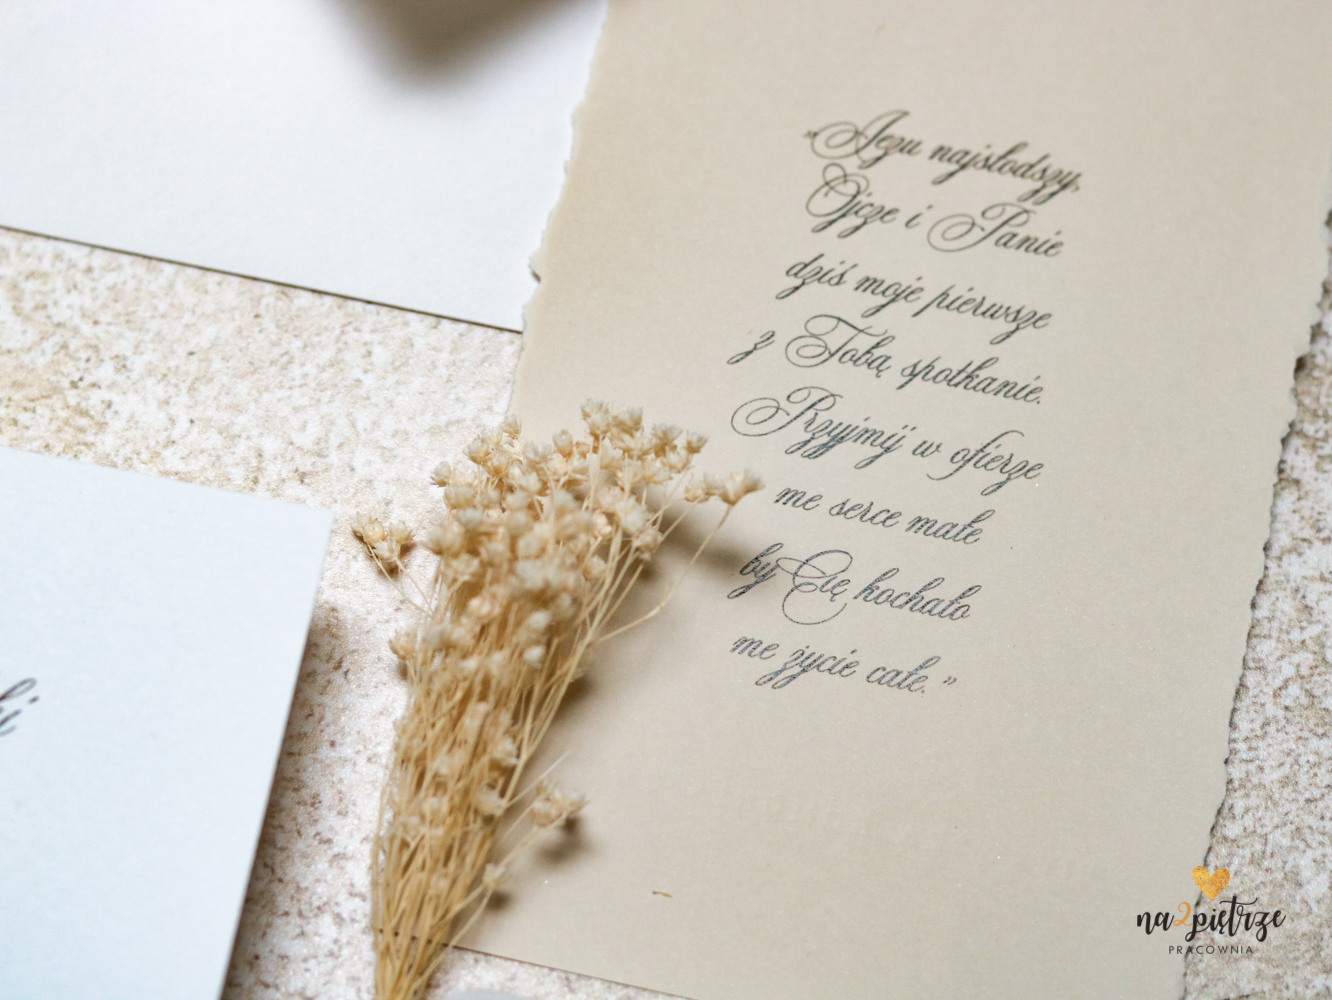 „Jezu najsłodszy,
Ojcze i Panie
dziś moje pierwsze
z Tobą spotkanie.
Przyjmij w ofierze
me serce małe
by Cię kochało
me życie całe.”
na2piętrze
PRACOWNIA